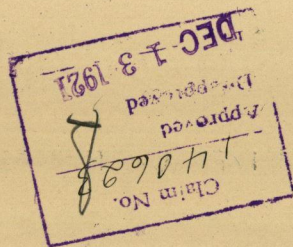 Claim No.
14062
Approved
Disapproved
DEC 13 1921